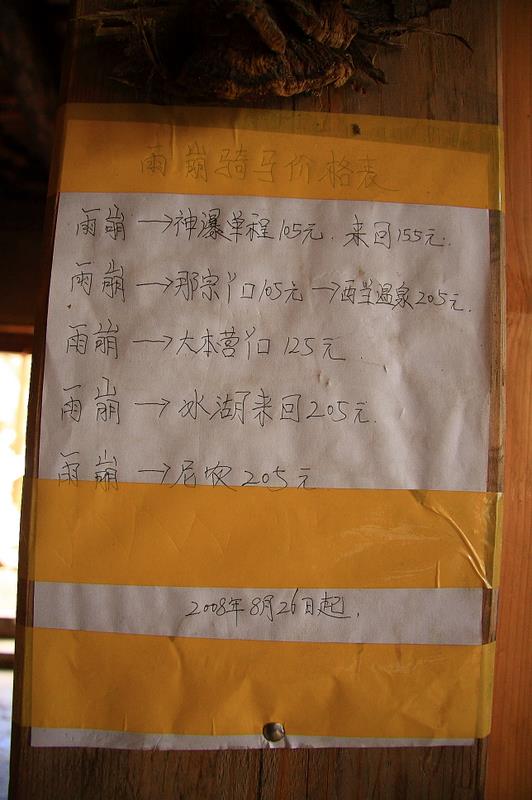 雨崩骑马价格表
雨崩→神瀑单程105元.来回155元.
雨崩→那宗丫口105元→西当温泉205元.
雨崩→大本营丫口125元.
雨崩→冰湖来回205元.
雨崩→尼农205元
2008年8月26日起.